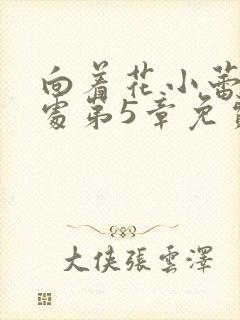 向着花小蕾
处第5章免
大侠張雲澤